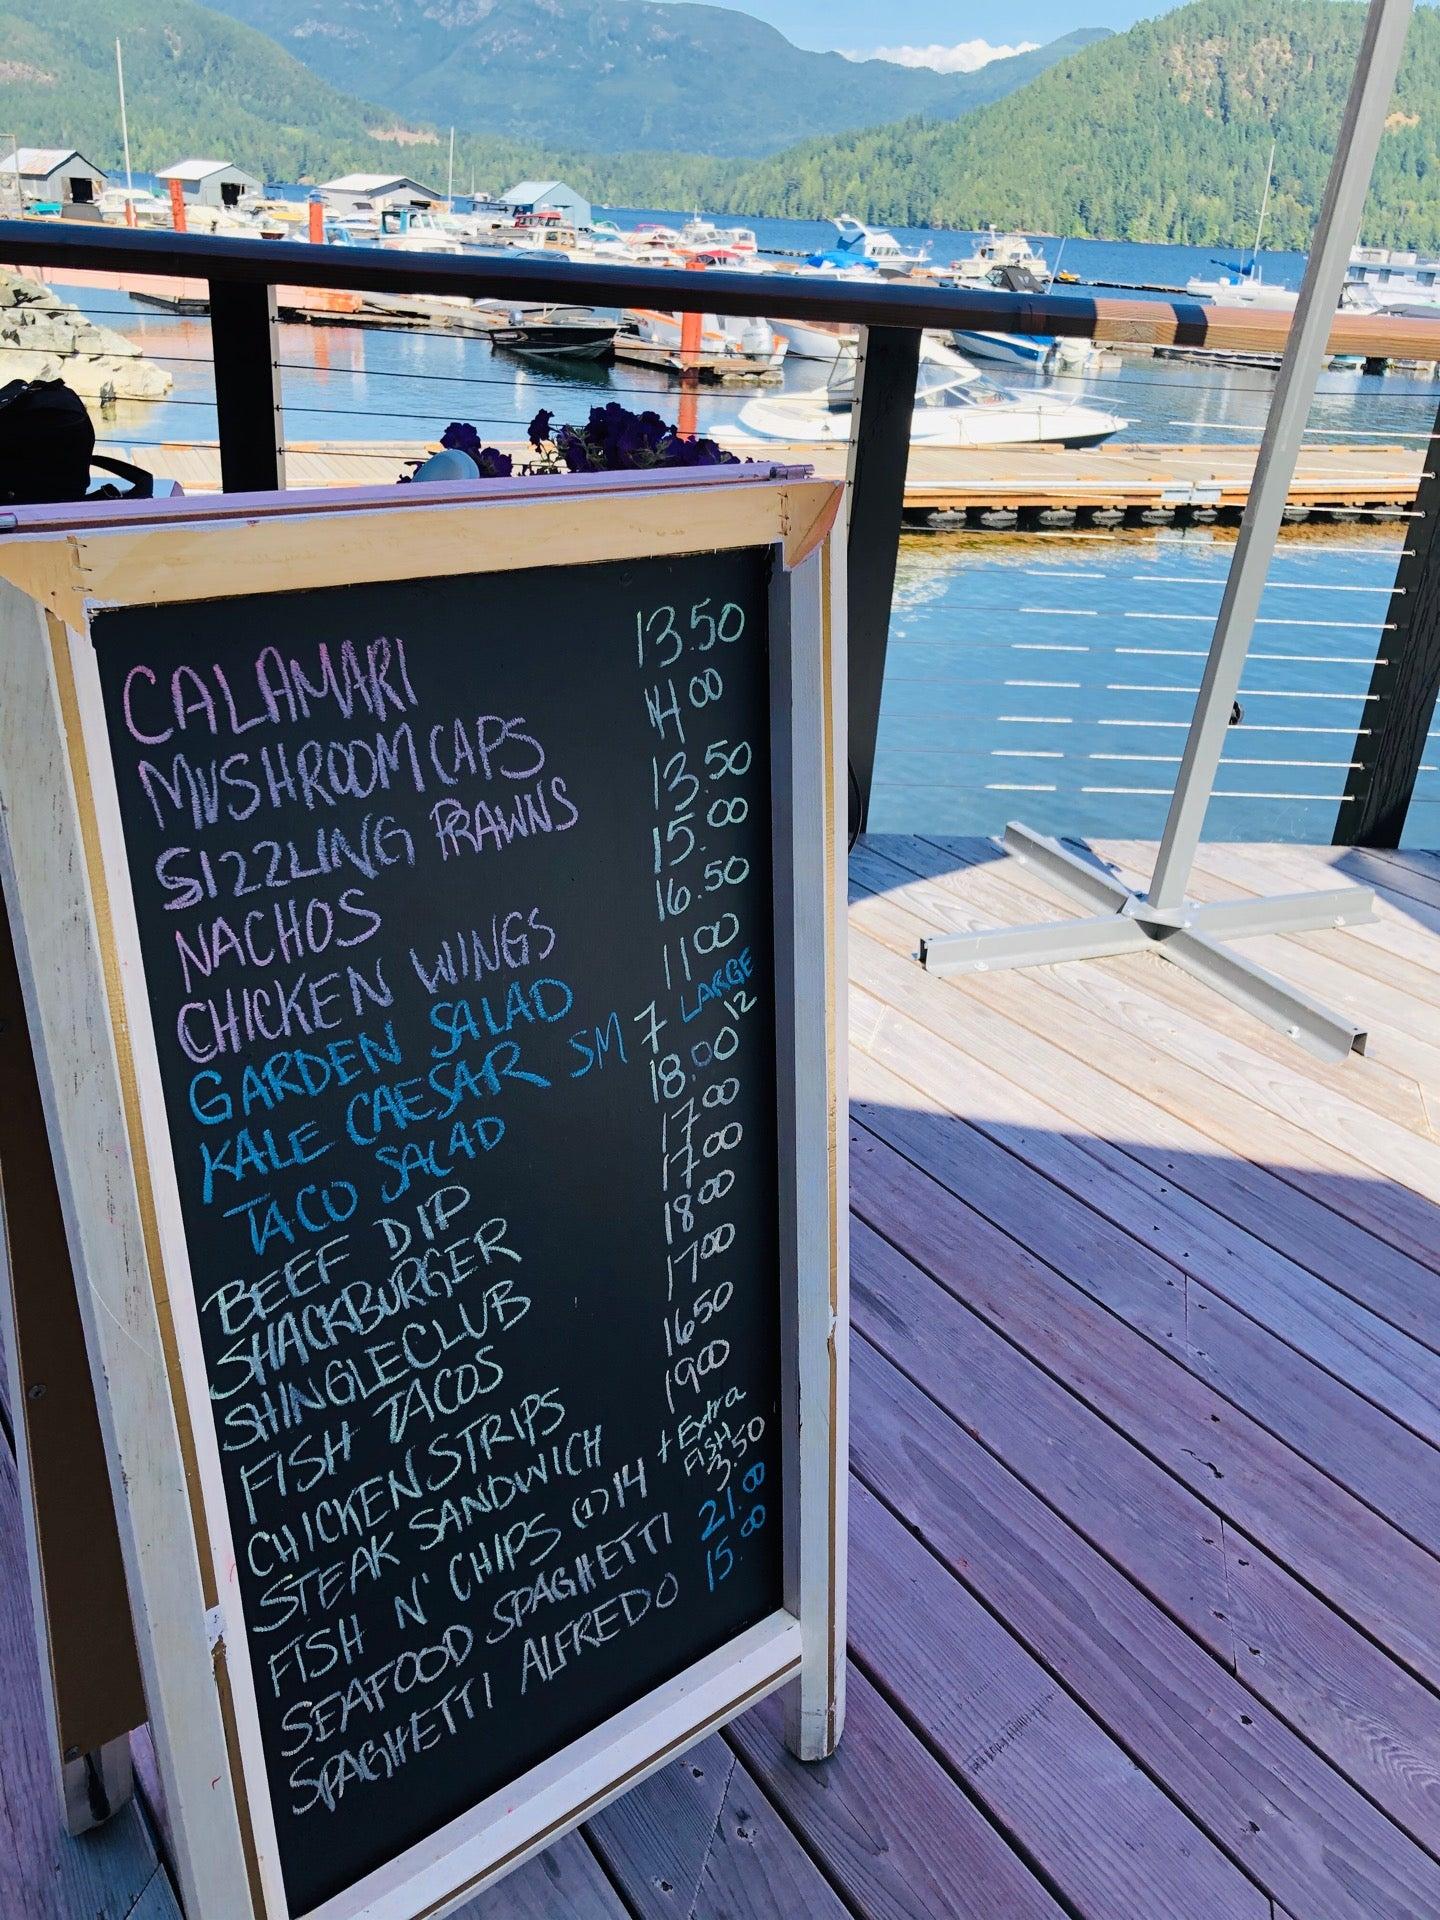 CALAMARI 13.50
MUSHROOM CAPS 14 00
SIZZLING PRAWNS 13.50
NACHOS 15.00
CHICKEN WINGS 16.50
GARDEN SALAD 11 00
KALE CAESAR SM 7 LARGE 12
TACO SALAD 18.00
BEEF DIP 17 00
SHACKBURGER 17 00
SHINGLECLUB 18 00
FISH TACOS 17 00
CHICKEN STRIPS 16 50
STEAK SANDWICH 19 00
FISH N' CHIPS (1) 14 + Extra FISH 3.50
SEAFOOD SPAGHETTI 21.00
SPAGHETTI ALFREDO 15.00